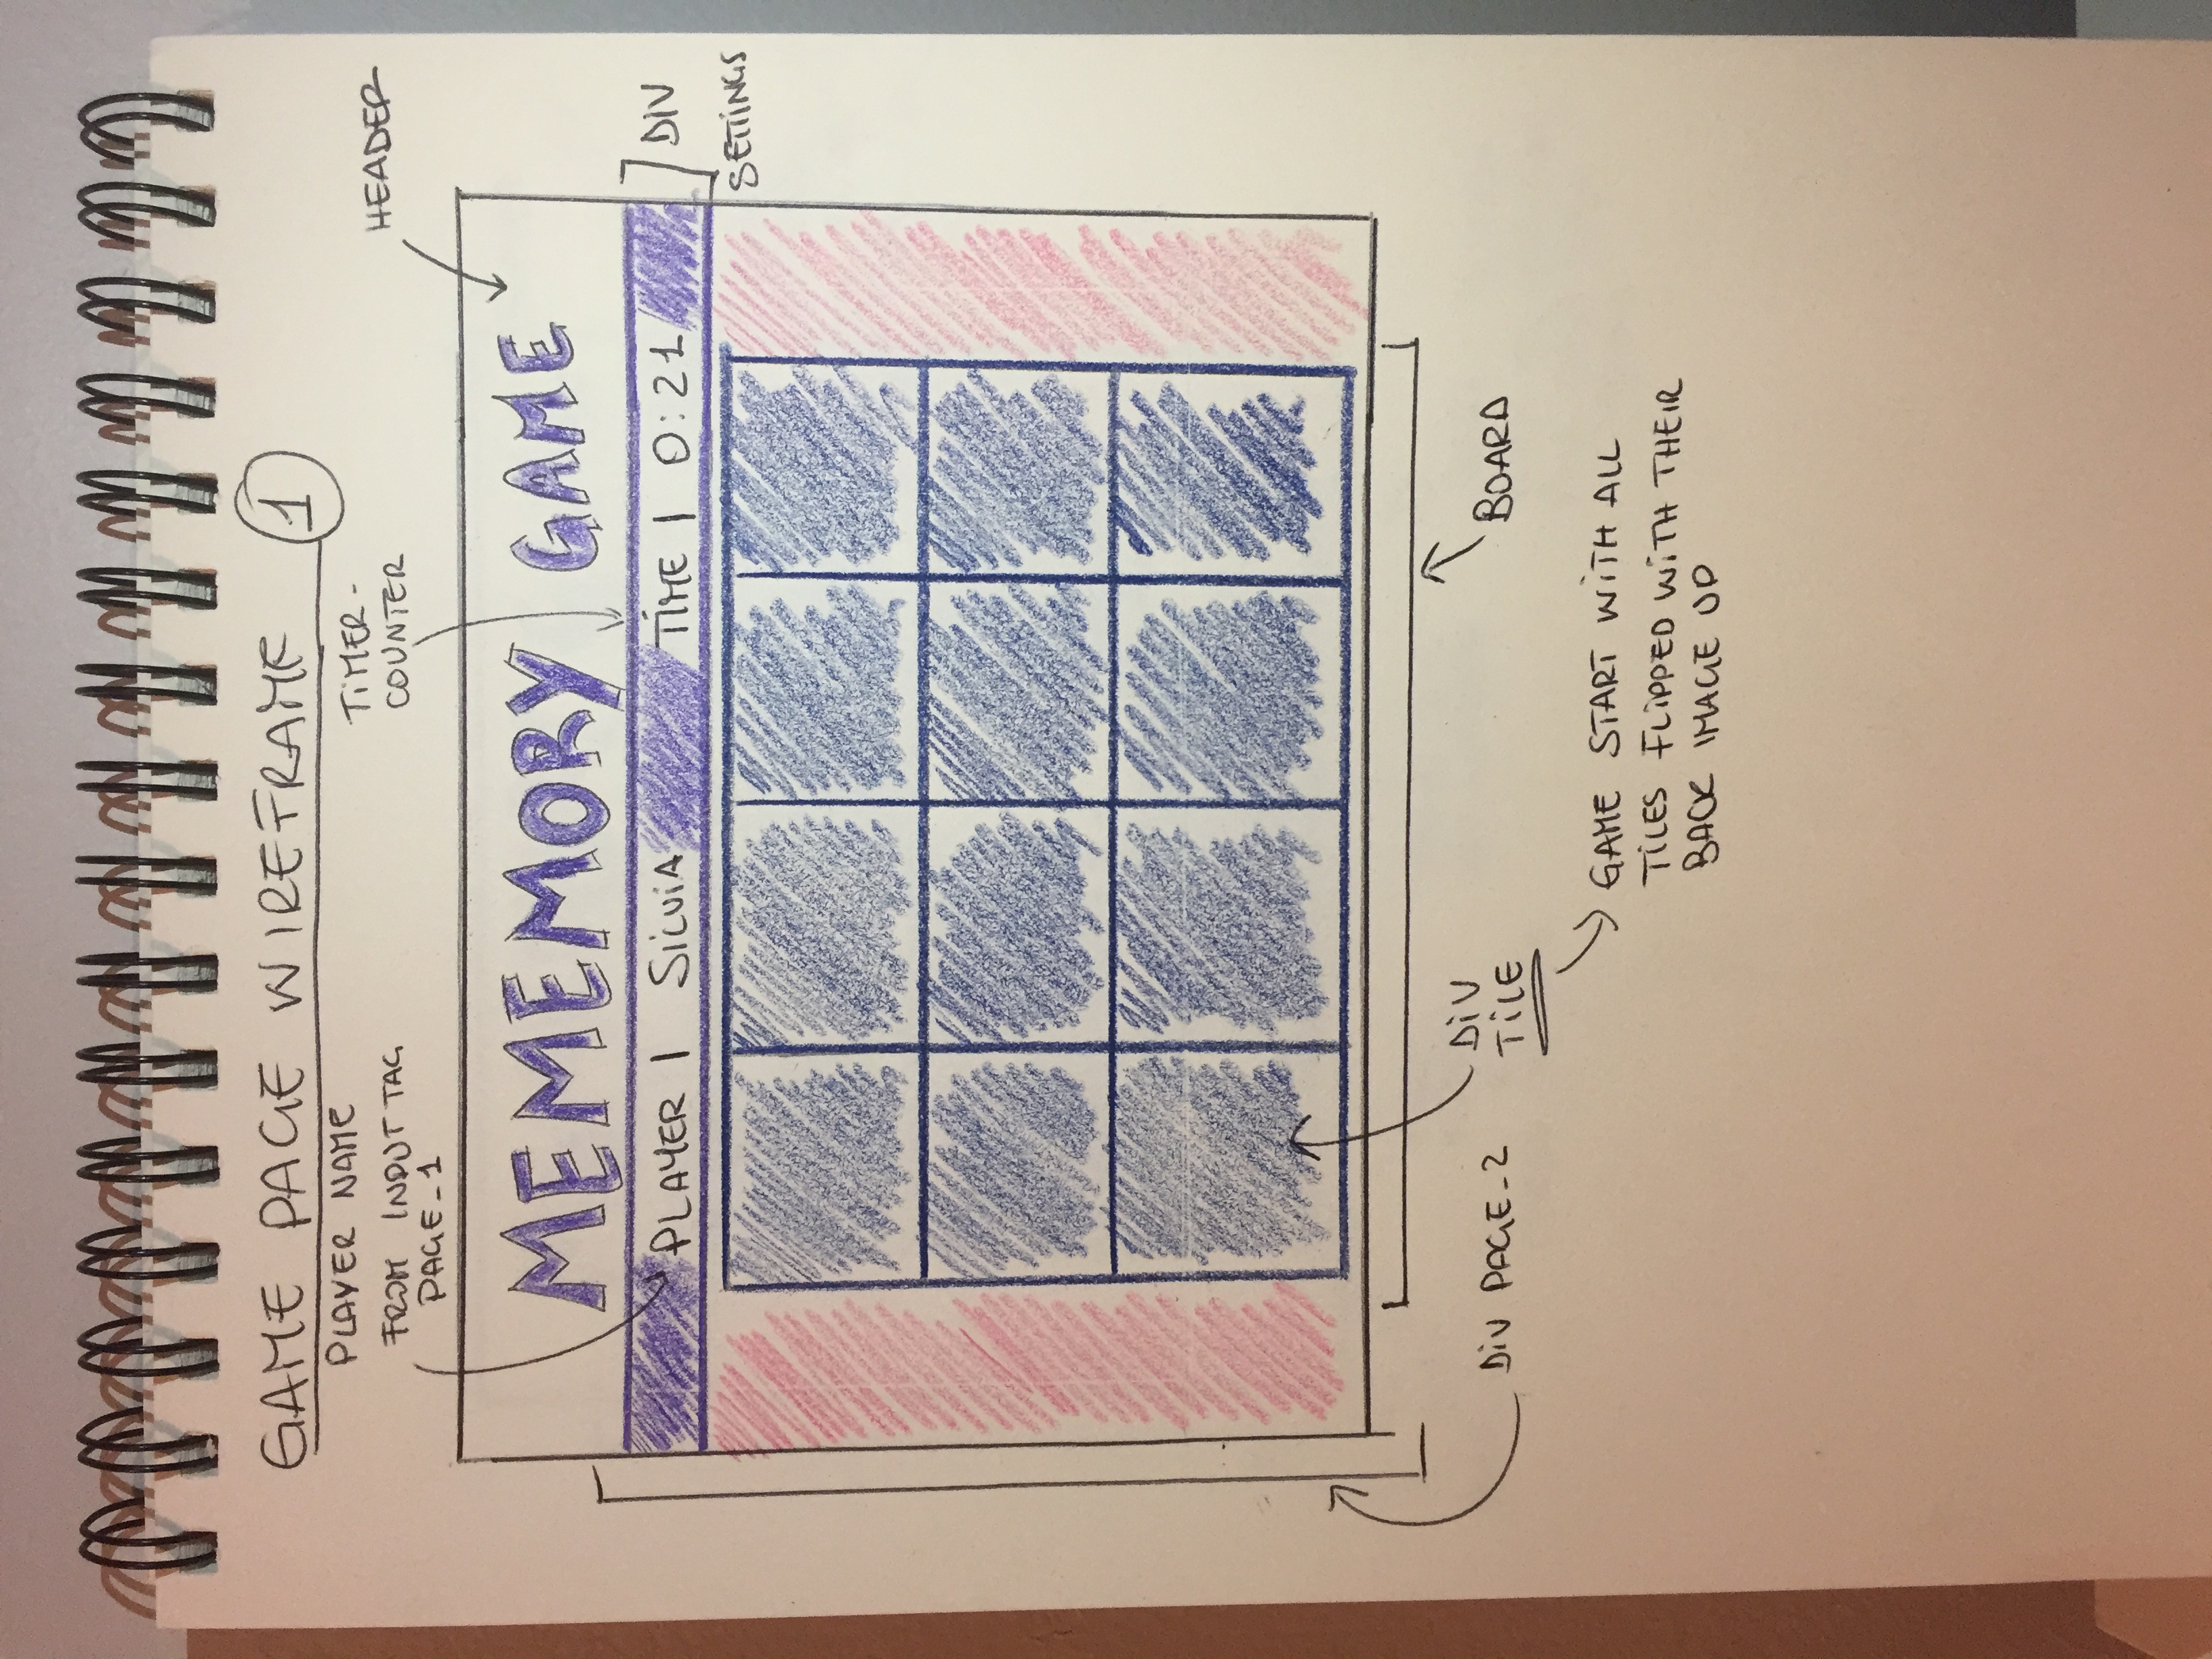 GAME PAGE WIREFRAME 1
PLAYER NAME
FROM INPUT TAG
PAGE_1
TIMER-
COUNTER
HEADER
MEMEMORY GAME
PLAYER | SILVIA TIME | 0:21
DIV
SETTINGS
DIV PAGE_2
DIV
TILE
BOARD
GAME START WITH ALL
TILES FLIPPED WITH THEIR
BACK IMAGE UP